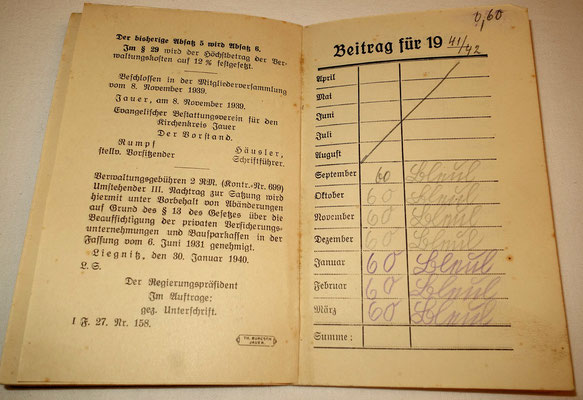 Der bisherige Absatz 5 wird Absatz 6.
Im § 29 wird der Höchstbetrag der Ver-
waltungskosten auf 12 % festgesetzt.
Beschlossen in der Mitgliederversammlung
vom 8. November 1939.
Jauer, am 8. November 1939.
Evangelischer Bestattungsverein für den
Kirchenkreis Jauer
Der Vorstand.
Rumpf Häusler,
stellv. Vorsitzender Schriftführer.
Verwaltungsgebühren 2 RM. (Kontr.-Nr. 699)
Umstehender III. Nachtrag zur Satzung wird
hiermit unter Vorbehalt von Abänderungen
auf Grund des § 13 des Gesetzes über die
Beaufsichtigung der privaten Versicherungs-
unternehmungen und Bausparkassen in der
Fassung vom 6. Juni 1931 genehmigt.
Liegnitz, den 30. Januar 1940.
L. S.
Der Regierungspräsident
Im Auftrage:
gez. Unterschrift.
I F. 27. Nr. 158.
JAUER
0,60
Beitrag für 19 41/42
April
Mai
Juni
Juli
August
September 60
Oktober 60
November 60
Dezember 60
Januar 60
Februar 60
März 60
Summe: